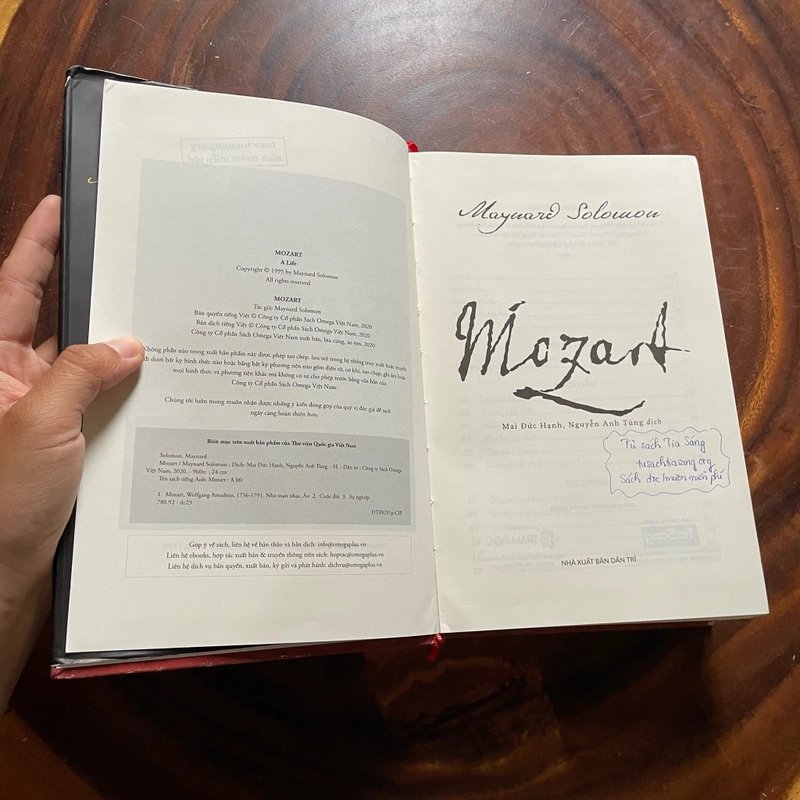 MOZART
A Life
Copyright © 1995 by Maynard Solomon
All rights reserved
MOZART
Tác giả: Maynard Solomon
Bản quyền tiếng Việt © Công ty Cổ phần Sách Omega Việt Nam, 2020
Bản dịch tiếng Việt © Công ty Cổ phần Sách Omega Việt Nam, 2020
Công ty Cổ phần Sách Omega Việt Nam xuất bản, bìa cứng, áo ôm, 2020
Không phần nào trong xuất bản phẩm này được phép sao chép, lưu trữ trong hệ thống truy xuất hoặc truyền
đi dưới bất kỳ hình thức nào hoặc bằng bất kỳ phương tiện nào gồm điện tử, cơ khí, sao chụp, ghi âm hoặc
mọi hình thức và phương tiện khác mà không có sự cho phép trước bằng văn bản của
Công ty Cổ phần Sách Omega Việt Nam.
Chúng tôi luôn mong muốn nhận được những ý kiến đóng góp của quý vị độc giả để sách
ngày càng hoàn thiện hơn.
Biên mục trên xuất bản phẩm của Thư viện Quốc gia Việt Nam
Solomon, Maynard
Mozart / Maynard Solomon ; Dịch: Mai Đức Hạnh, Nguyễn Anh Tùng. - H. : Dân trí ; Công ty Sách Omega
Việt Nam, 2020. - 968tr. ; 24 cm
Tên sách tiếng Anh: Mozart : A life
1. Mozart, Wolfgang Amadeus, 1756-1791, Nhà soạn nhạc, Áo 2. Cuộc đời 3. Sự nghiệp
780.92 - dc23
DTF0231p-CIP
Góp ý về sách, liên hệ về bản thảo và bản dịch: info@omegaplus.vn
Liên hệ ebooks, hợp tác xuất bản & truyền thông trên sách: hoptac@omegaplus.vn
Liên hệ dịch vụ bản quyền, xuất bản, ký gửi và phát hành: dichvu@omegaplus.vn
Maynard Solomon
Mozart
Mai Đức Hạnh, Nguyễn Anh Tùng dịch
Tủ sách Tia Sáng
tusachtiasang.org
Sách đọc/mượn miễn phí
NHÀ XUẤT BẢN DÂN TRÍ